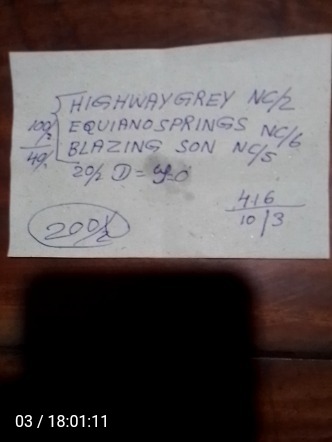 HIGHWAYGREY NC/2
100/2 EQUIANOSPRINGS NC/6
40/2 BLAZING SON NC/5
20/2 D =
416
10/3
200/2
03 / 18:01:11